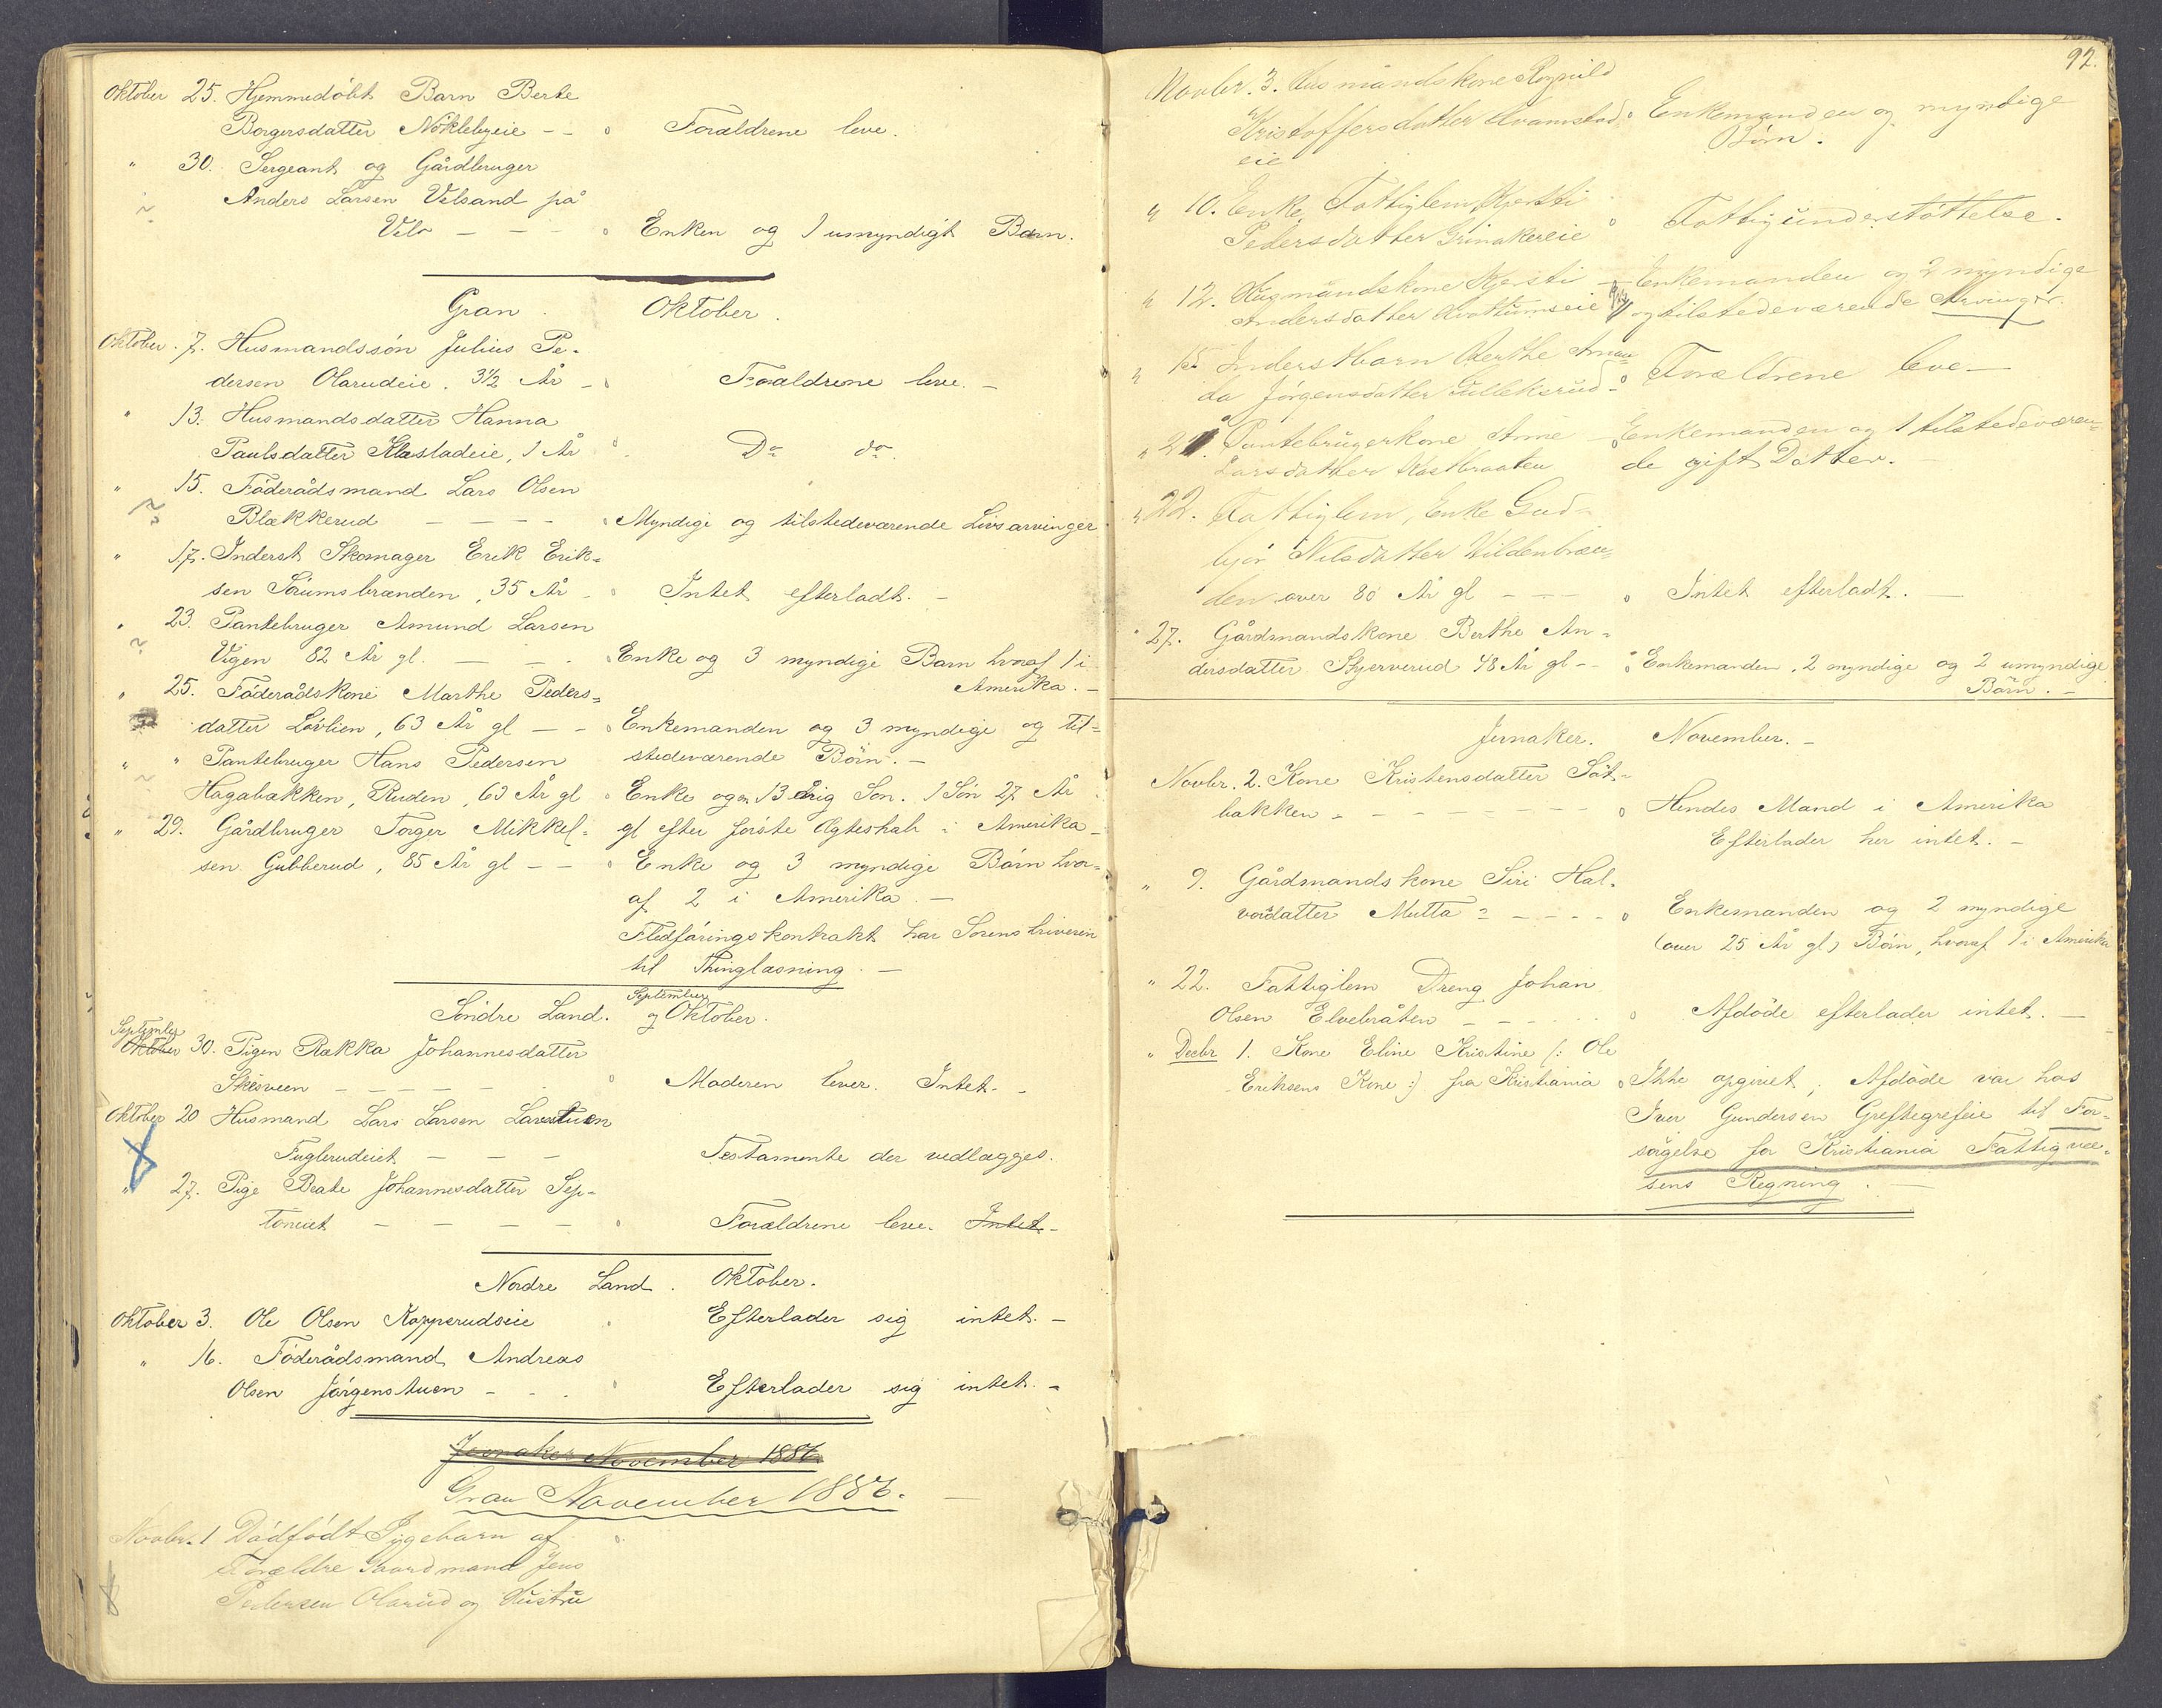 Oktober 25. Hjemmedöbt Barn Berte
Borgersdatter Nöklebyeie - - Forældrene leve.
" 30. Sergeant og Gårdbruger
Anders Larsen Velsand på
Velo - - - Enken og 1 umyndigt Barn.
Gran. Oktober.
Oktober. 7. Husmandssön Julius Pe-
dersen Olarudeie. 3 1/2 År - Forældrene leve. -
" 13. Husmandsdatter Hanna
Paulsdatter Klæstadeie, 1 År Do do.
" 15. Föderådsmand Lars Olsen
Blækkerud - - - - Myndige og tilstedeværende Livsarvinger
" 17. Inderst Skomager Erik Erik=
sen Sörumsbrænden, 35 År - Intet efterladt. -
" 23. Pantebruger Amund Larsen
Vigen 82 År gl. - - - Enke og 3 myndige Barn hvoraf 1 i
Amerika. -
" 25. Föderådskone Marthe Peders=
datter Lövlien, 63 År gl - - Enkemanden og 3 myndige og til=
stedeværende Börn. -
" " Pantebruger Hans Pedersen
Hagabakken, Ruden, 63 År gl Enke og en 13 årig Son. 1 Sön 27 År
gl efter förste Ægteskab i Amerika -
" 29. Gårdbruger Torger Mikkel-
sen Gubberud, 85 År gl - - Enke og 3 myndige Börn hvor=
af 2 i Amerika. -
Fledföringskontrakt har Sorenskriveren
til Thinglæsning. -
Söndre Land. September og Oktober.
September Oktober 30. Pigen Rakka Johannesdatter
Skesveen - - - - - Moderen lever. Intet. -
Oktober 20 Husmand Lars Larsen Larsstuen
Fuglerudeiet - - - Testamente der vedlægges.
" 27. Pige Beate Johannesdatter Sep-
toneiet - - - - Forældrene leve. Intet. -
Nordre Land. Oktober.
Oktober 3. Ole Olsen Kopperudseie Efterlader sig intet. -
" 16. Föderådsmand Andreas
Olsen Jörgenstuen - - . Efterlader sig intet. -
Jevnaker November 1886.
Gran November 1886. -
Novbr. 1 Dödfödt Pigebarn af
Forældre Gaardmand Jens
Pedersen Olarud og Hustru
92.
Novbr. 3. Husmandskone Ragnild
Kristoffersdatter Hvamstad- Enkemanden og myndige
eie Börn.
" 10. Enke, Fattiglem Kjersti
Pedersdatter Grinakereie Fattigunderstöttelse.
" 12. Husmandskone Kjersti - Enkemanden og 2 myndige
Andersdatter Hvattumseie og tilstedeværende Arvinger.
" 15 Inderstbarn Berthe Aman=
da Jörgensdatter Gulleksrud - Forældrene leve -
" 21. Pantebrugerkone Anne - Enkemanden og 1 tilstedeværen=
Larsdatter Kastbraaten de gift Datter. -
" 22. Fattiglem, Enke Gud=
björ Nilsdatter Hildenbræn=
den over 80 År gl - - - Intet efterladt. -
" 27. Gårdmandskone Berthe An=
dersdatter Skjerverud 48 År gl - - Enkemanden, 2 myndige og 2 umyndige
Börn. -
Jevnaker. November. -
Novbr. 2. Kone Kristensdatter Sät=
bakken - - - - - - Hendes Mand i Amerika
Efterlader her intet. -
" 9. Gårdmandskone Siri Hal=
vorsdatter Mutta - - - - Enkemanden og 2 myndige
(over 25 År gl) Börn, hvoraf 1 i Amerika
" 22. Fattiglem Dreng Johan
Olsen Elvebråten - - - Afdöde efterlader intet. -
" Decbr 1. Kone Eline Kristine (: Ole
Eriksens Kone :) fra Kristiania Ikke opgivet, Afdöde var hos
Iver Gundersen Greftegrefeie til For=
sörgelse for Kristiania Fattigvæ=
sens Regning. -